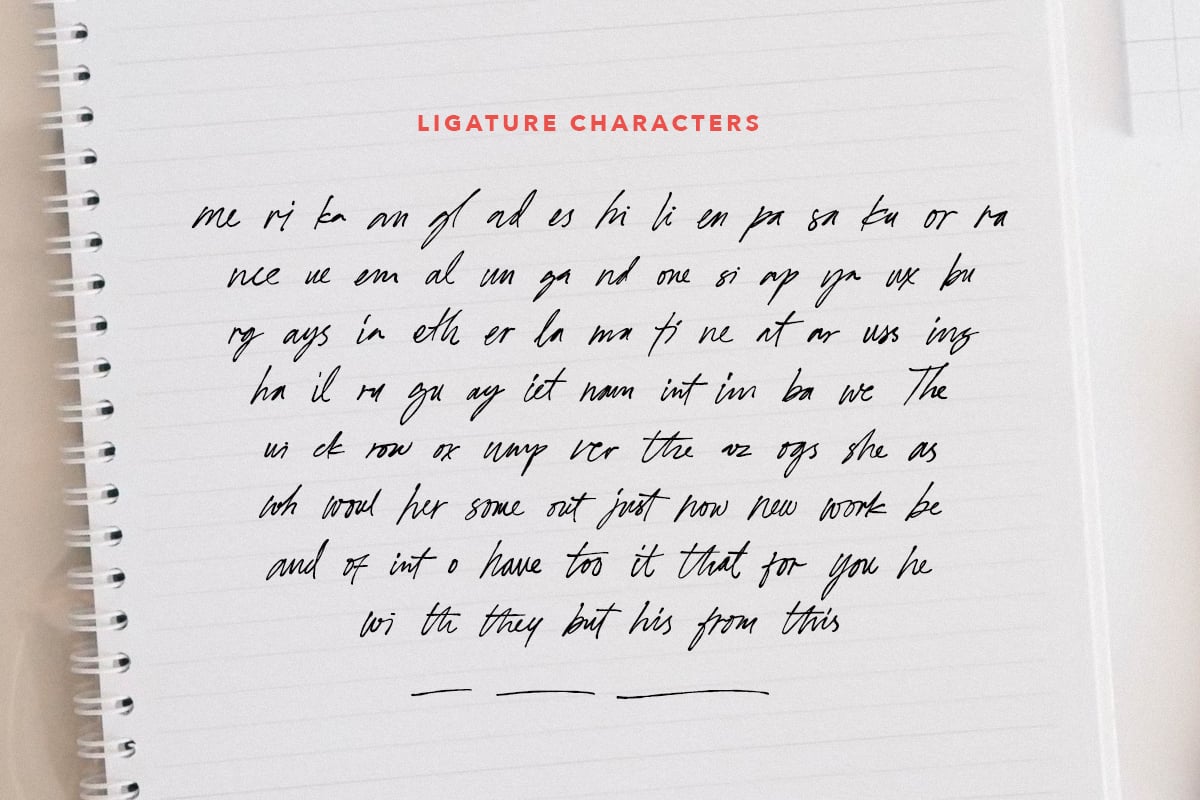 LIGATURE CHARACTERS
me ri ka an gl ad es hi li en pa sa ku or ra
nce ue em al un ga nd one si ap ya ux bu
rg ays ia eth er la ma ti ne at ar uss ing
ha il ru gu ay iet nam int im ba we The
ui ck row ox ump ver the az ogs she as
wh woul her some out just now new work be
and of int o have too it that for you he
wi th they but his from this